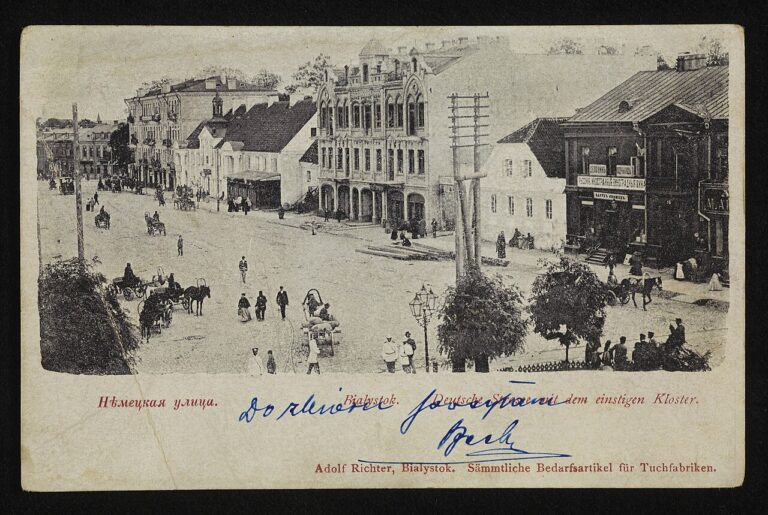 Нѣмецкая улица. Bialystok. Deutsche Strasse mit dem einstigen Kloster.
Do zbioru posyłam
Adolf Richter, Bialystok. Sämmtliche Bedarfsartikel für Tuchfabriken.